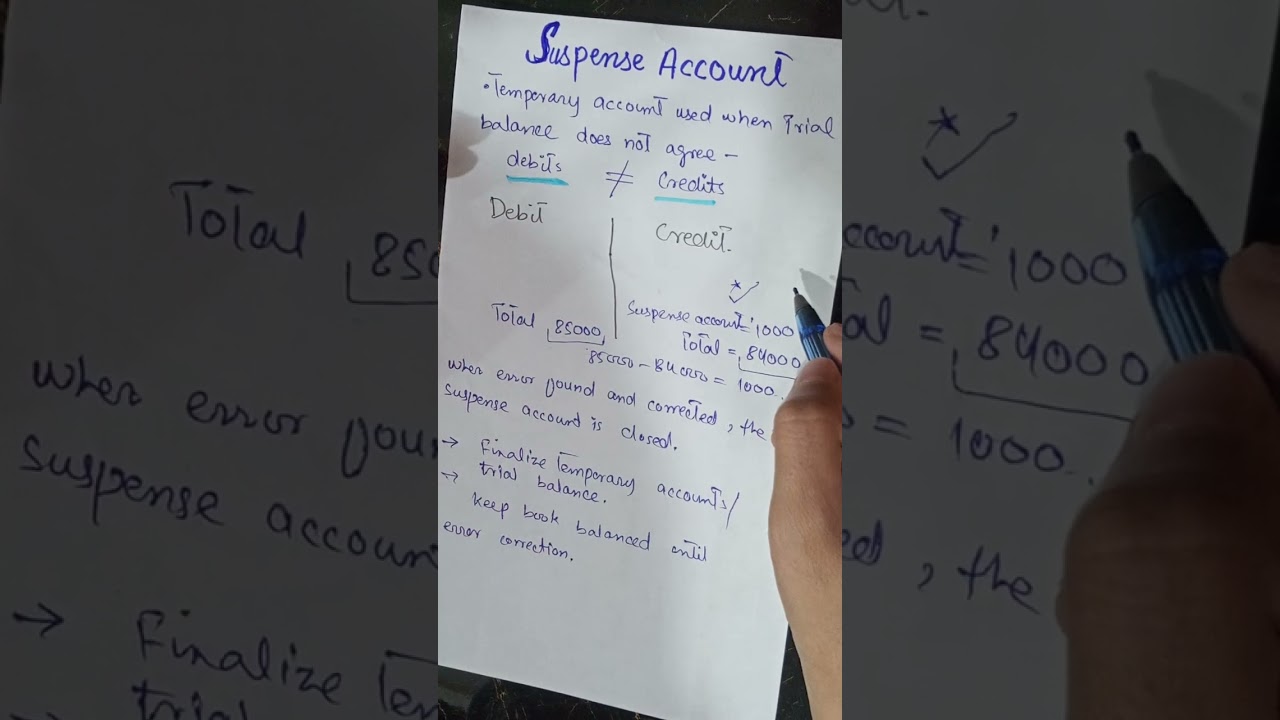 Suspense Account
• Temporary account used when Trial
balance does not agree –
debits ≠ Credits
Debit
Credit.
* ✓
Suspense account = 1000
Total 85000
Total = 84000
85000 – 84000 = 1000.
when error found and corrected, the
suspense account is closed.
→ Finalize Temporary accounts/
trial balance.
→ Keep book balanced until
error correction.